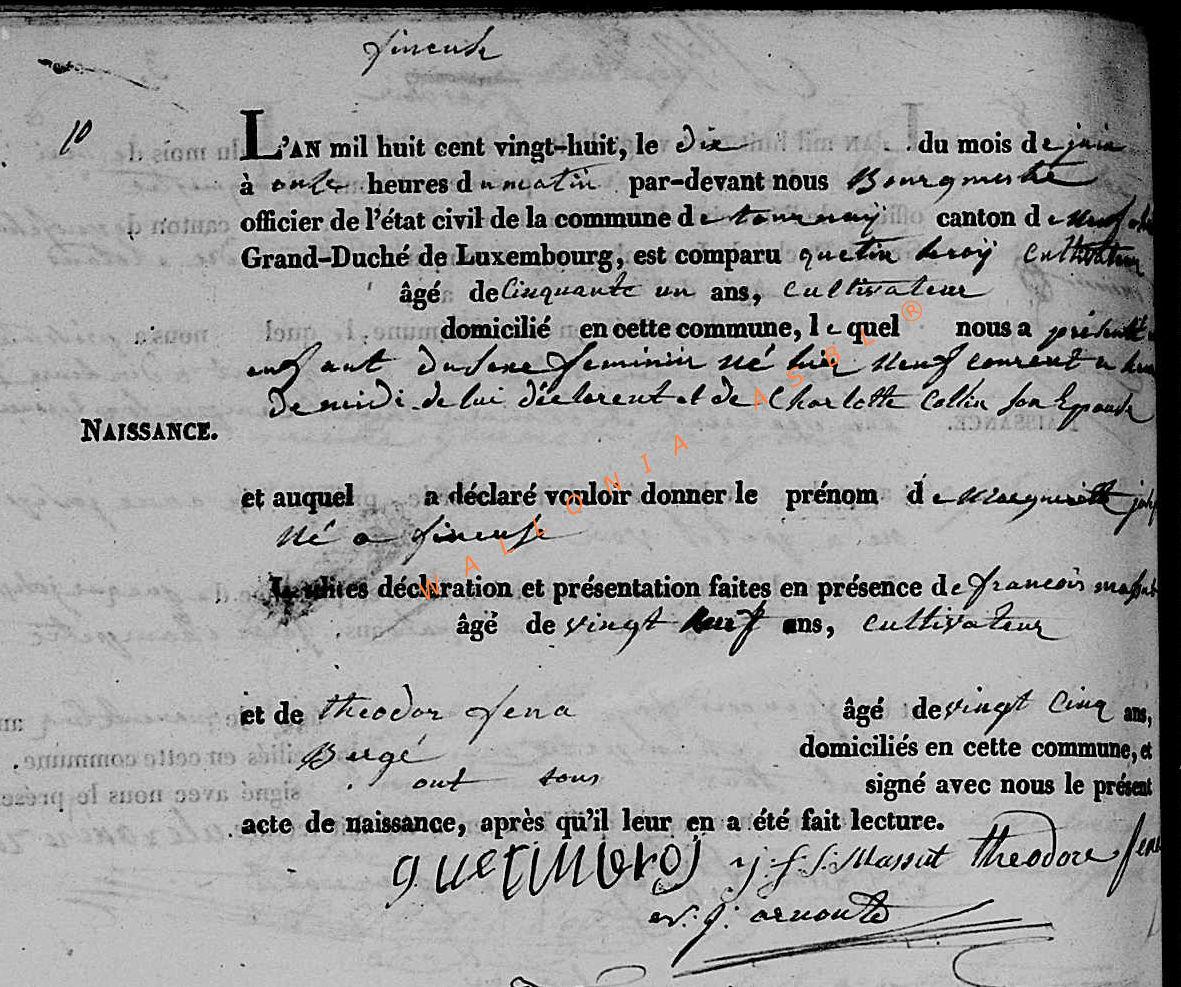 fineuse
10
L'AN mil huit cent vingt-huit, le dix du mois de juin
à onze heures du matin par-devant nous Bourgmestre
officier de l'état civil de la commune de tournay canton de neuf
Grand-Duché de Luxembourg, est comparu quetin leroÿ cultivateur
âgé de Cinquante un ans, cultivateur
domicilié en cette commune, lequel nous a présenté
enfant du sexe feminin né hier neuf courent a
de midi de lui déclarent et de Charlotte Collin son Epouse
NAISSANCE.
et auquel a déclaré vouloir donner le prénom de
né a fineuse
Lesdites déclaration et présentation faites en présence de francois
âgé de vingt neuf ans, cultivateur
et de theodor fena âgé de vingt cinq ans,
Bergé domiciliés en cette commune, et
ont tous signé avec nous le présent
acte de naissance, après qu'il leur en a été fait lecture.
quetin leroÿ j. f. j. Massut theodore
j. arnould
WALLONIA ASBL ®